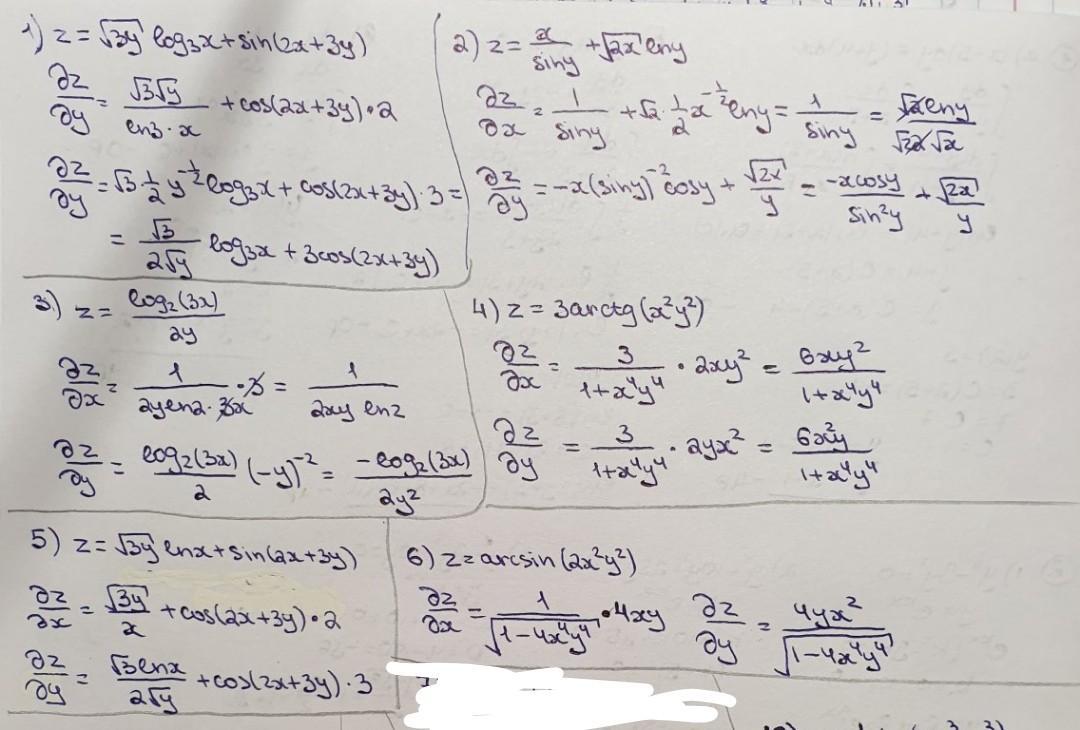 1) z = √3y log₃x + sin(2x+3y)
∂z/∂y = √3√y / (ln3·x) + cos(2x+3y)·2
∂z/∂y = √3·1/2 y^(-1/2) log₃x + cos(2x+3y)·3 =
= √3/(2√y) log₃x + 3cos(2x+3y)
2) z = x/siny + √2x lny
∂z/∂x = 1/siny + √2·1/2 x^(-1/2) lny = 1/siny = √2 lny/(√2x √x)
∂z/∂y = -x(siny)^(-2) cosy + √2x/y = -xcosy/sin²y + √2x/y
3) z = log₂(3x)/2y
∂z/∂x = 1/(2yln2·3x)·3 = 1/(2xy ln2)
∂z/∂y = log₂(3x)/2 (-y)^(-2) = -log₂(3x)/2y²
4) z = 3arctg(x²y²)
∂z/∂x = 3/(1+x⁴y⁴) · 2xy² = 6xy²/(1+x⁴y⁴)
∂z/∂y = 3/(1+x⁴y⁴) · 2yx² = 6x²y/(1+x⁴y⁴)
5) z = √3y lnx + sin(2x+3y)
∂z/∂x = √3y/x + cos(2x+3y)·2
∂z/∂y = √3lnx/(2√y) + cos(2x+3y)·3
6) z = arcsin(2x²y²)
∂z/∂x = 1/√(1-4x⁴y⁴) · 4xy ∂z/∂y = 4yx²/√(1-4x⁴y⁴)